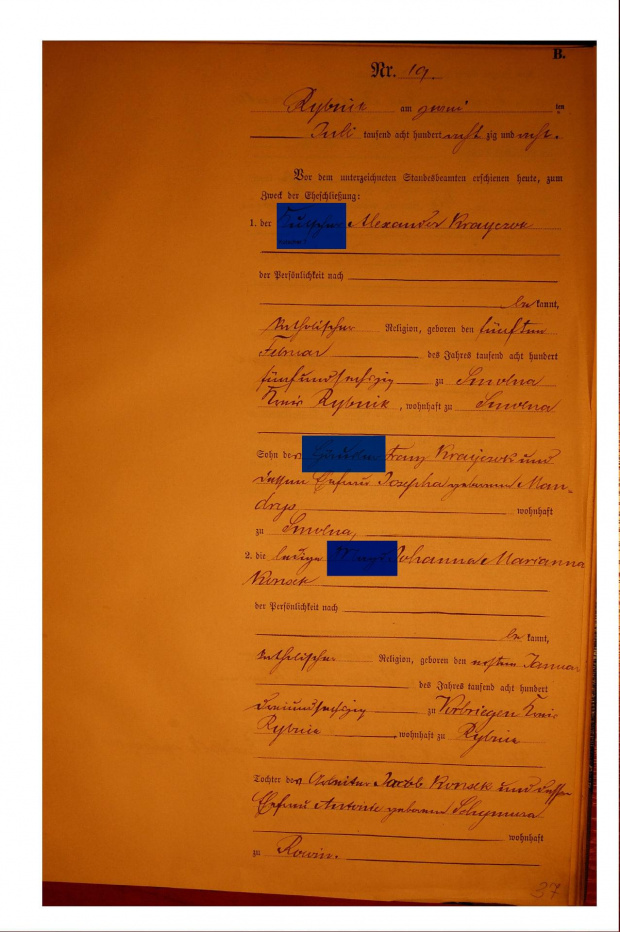 B.
Nr. 19.
Rybnik am zwei ten
Juli tausend acht hundert acht zig und acht.
Vor dem unterzeichneten Standesbeamten erschienen heute, zum
Zweck der Eheschließung:
1. der Kutscher Alexander Krayczok
der Persönlichkeit nach
be kannt,
katholischer Religion, geboren den fünften
Februar des Jahres tausend acht hundert
fünfundsechszig zu Smolna
Kreis Rybnik, wohnhaft zu Smolna
Sohn des Häusler Franz Krayczok und
dessen Ehefrau Josepha geborene Man-
drys wohnhaft
zu Smolna,
2. die ledige Magd Johanna Marianna
Konsek
der Persönlichkeit nach
be kannt,
katholischer Religion, geboren den ersten Januar
des Jahres tausend acht hundert
dreiundsechszig zu Kreis
Rybnik, wohnhaft zu Rybnik
Tochter des Arbeiter Jacob Konsek und dessen
Ehefrau geborene
wohnhaft
zu Rowin.
37